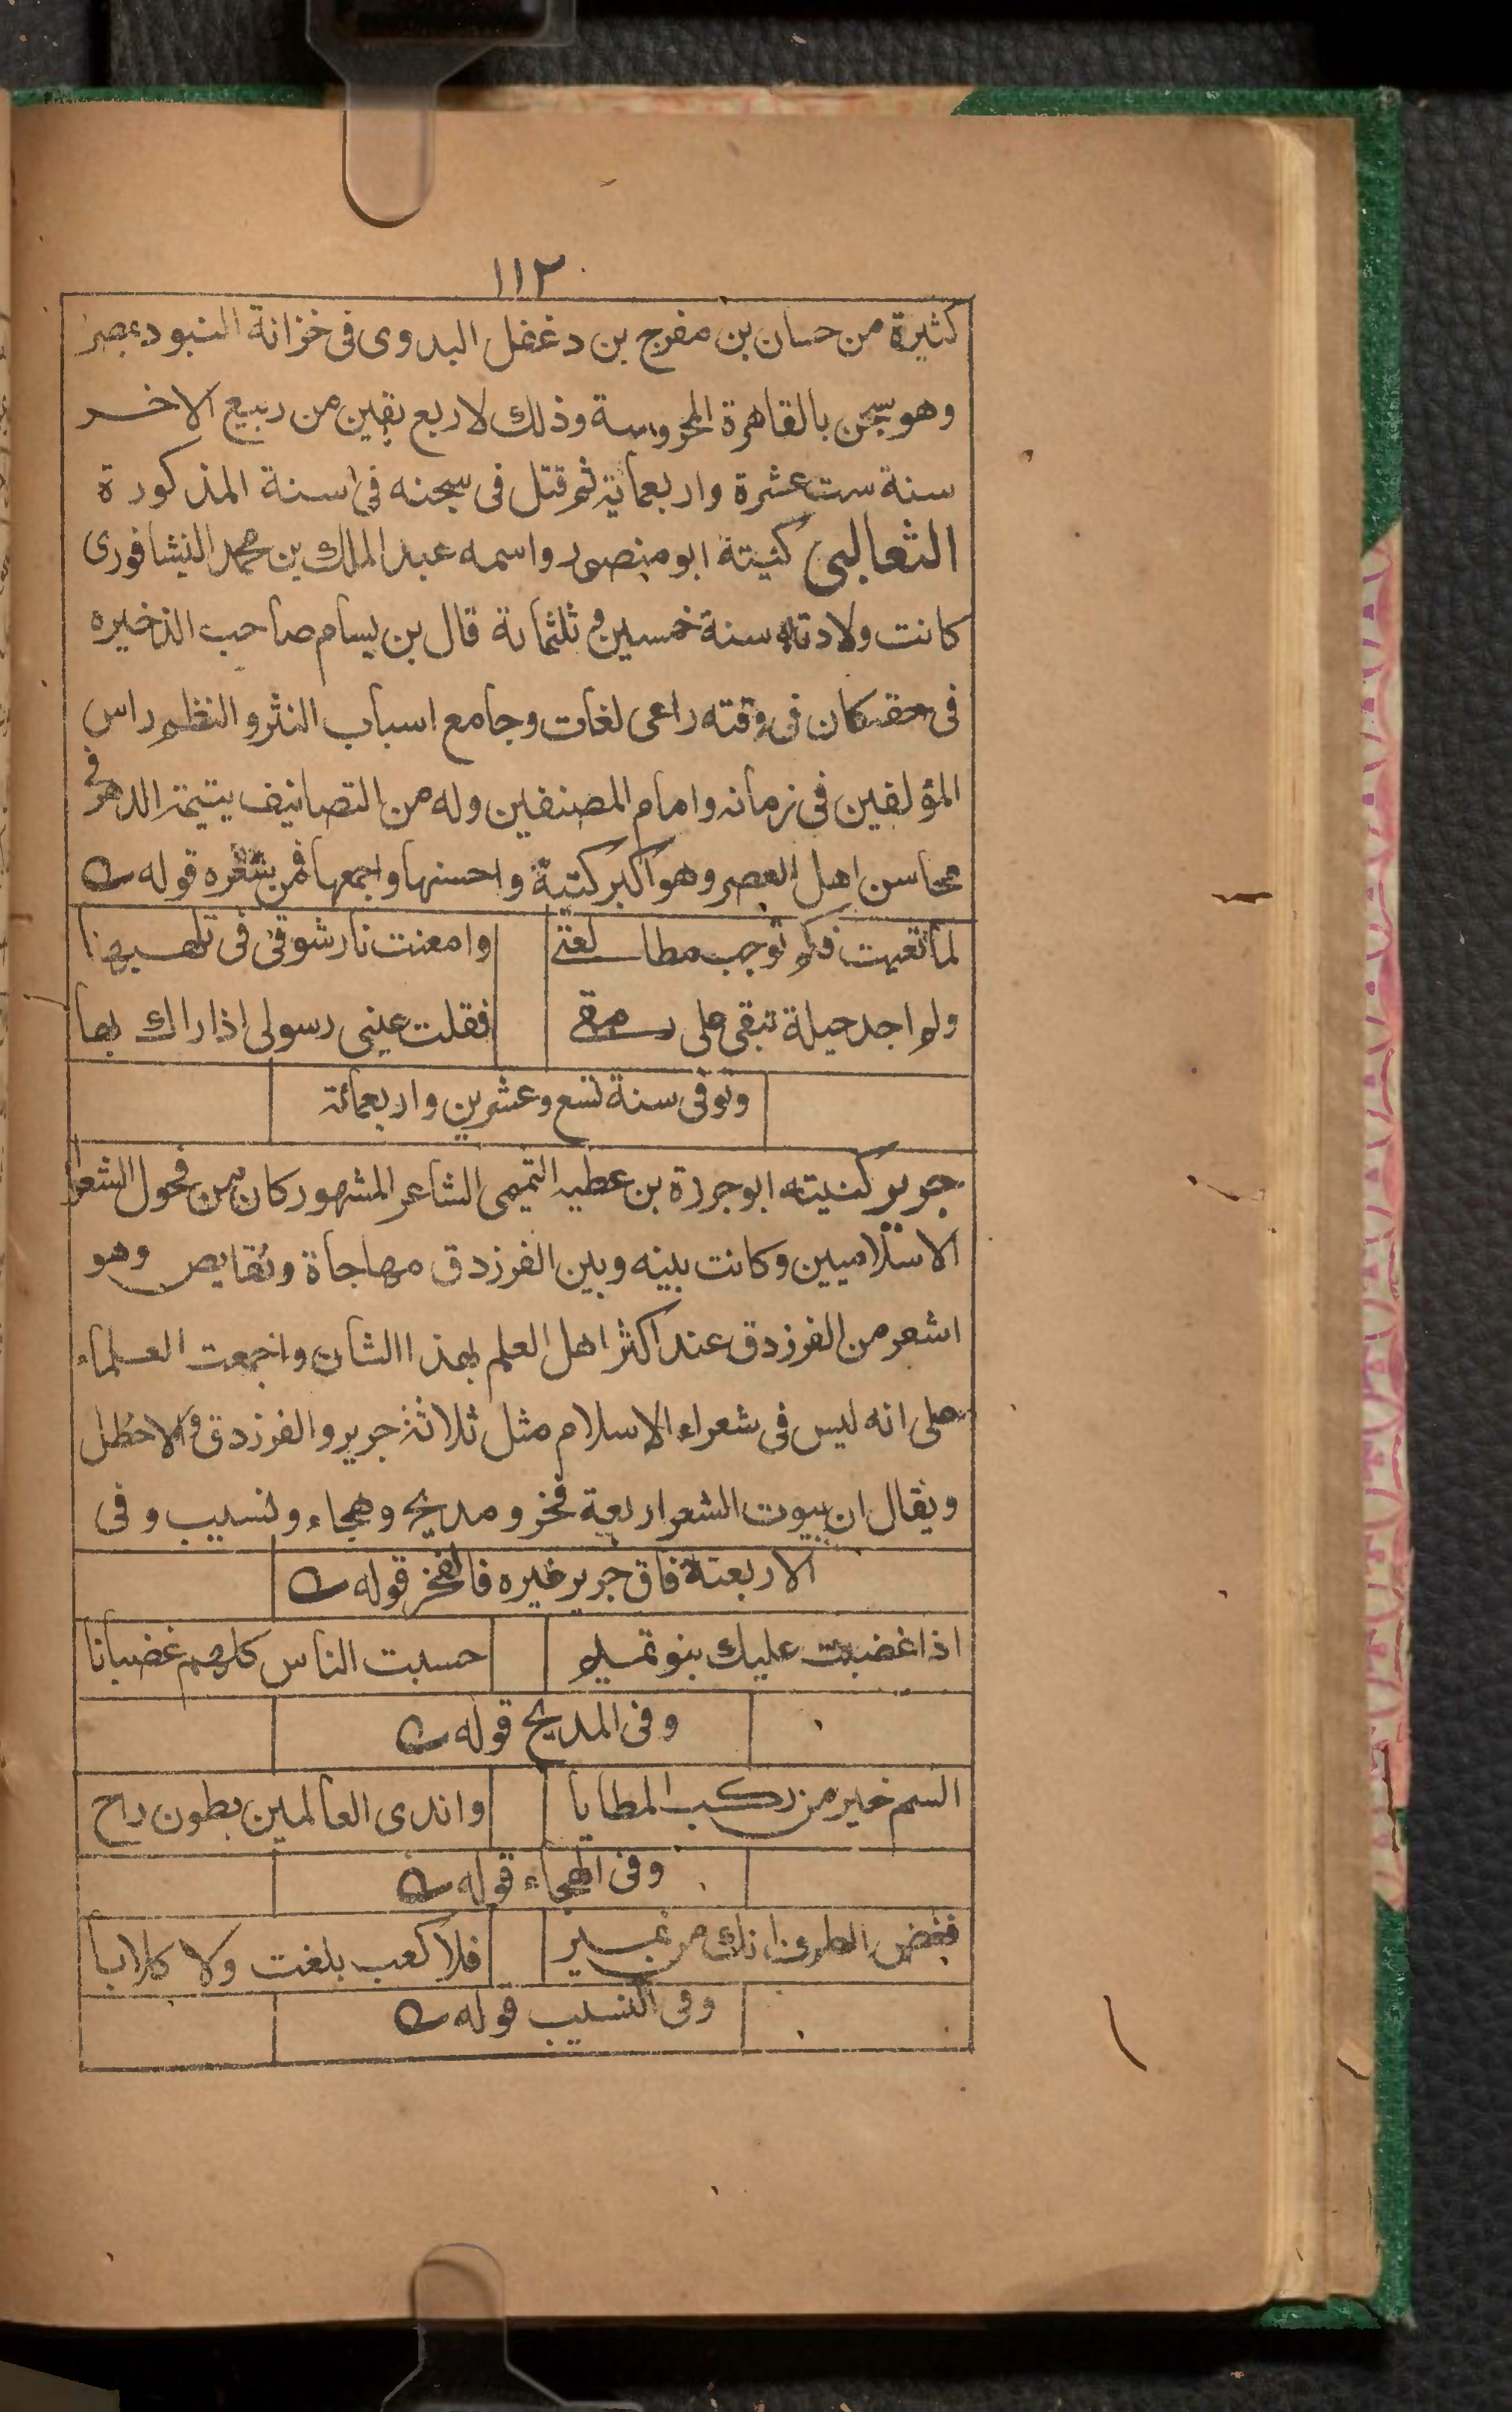 ١١٢
كثيرة من حسان بن مفرج بن دغفل البدوى فى خزانة البنود بمصر
وهو سجن بالقاهرة المحروسة وذلك لاربع بقين من ربيع الاخر
سنة ست عشرة واربعماية ثم قتل فى سجنه فى اسنة المذكورة
الثعالبى كنيتة ابو منصور واسمه عبد الملك بن محمد النيشافورى
كانت ولادته سنة خمسين و ثلثماىة قال بن بسام صاحب الذخيره
فى حقه كان فى وقته راعى لغات وجامع اسباب النثر والنظم راس
المؤلفين فى زمانه وامام المصنفين وله من التصانيف يتيمة الدهر فى
محاسن اهل العصر وهو اكبر كتبة واحسنها واجمعها فمن شعره قوله
لما تعبت فلم توجب مطالعتى وامعنت نار شوقى فى تلهبها
ولم اجد حيلة تبقى على رمقى فقلت عينى رسولى اذا راك بها
وتوفى سنة تسع وعشرين واربعمائة
جرير كنيته ابو جررة بن عطيه التميمى الشاعر المشهور كان من فحول الشعرا
الاسلاميين وكانت بينه وبين الفرزدق مهاجاة ونقايص وهو
اشعر من الفرزدق عند اكثر اهل العلم بهذا االشان واجمعت العلماء
على انه ليس فى شعراء الاسلام مثل ثلاثة جرير والفرزدق و الاخطل
ويقال ان بيوت الشعر اربعة فخر ومديح وهجاء ونسيب وفى
الاربعتة فاق جرير غيره فالفخر قوله
اذا غضبت عليك بنو تميم حسبت الناس كلهم غضبانا
وفى المديح قوله
الستم خير من ركب المطايا واندى العالمين بطون راح
وفى الهجاء قوله
فغض الطرف انك من نمير فلا كعب بلغت ولا كلابا
وفى النسيب قوله